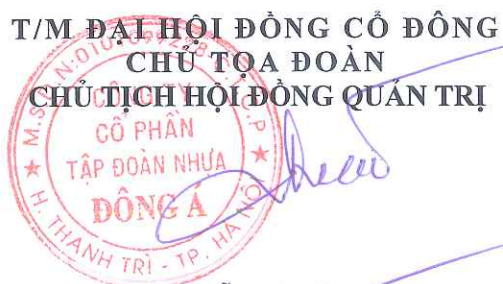 T/M ĐẠI HỘI ĐỒNG CỔ ĐÔNG
CHỦ TỌA ĐOÀN
CHỦ TỊCH HỘI ĐỒNG QUẢN TRỊ
CÔNG TY
CỔ PHẦN
TẬP ĐOÀN NHỰA
ĐÔNG Á
H. THANH TRÌ - TP. HÀ NỘI